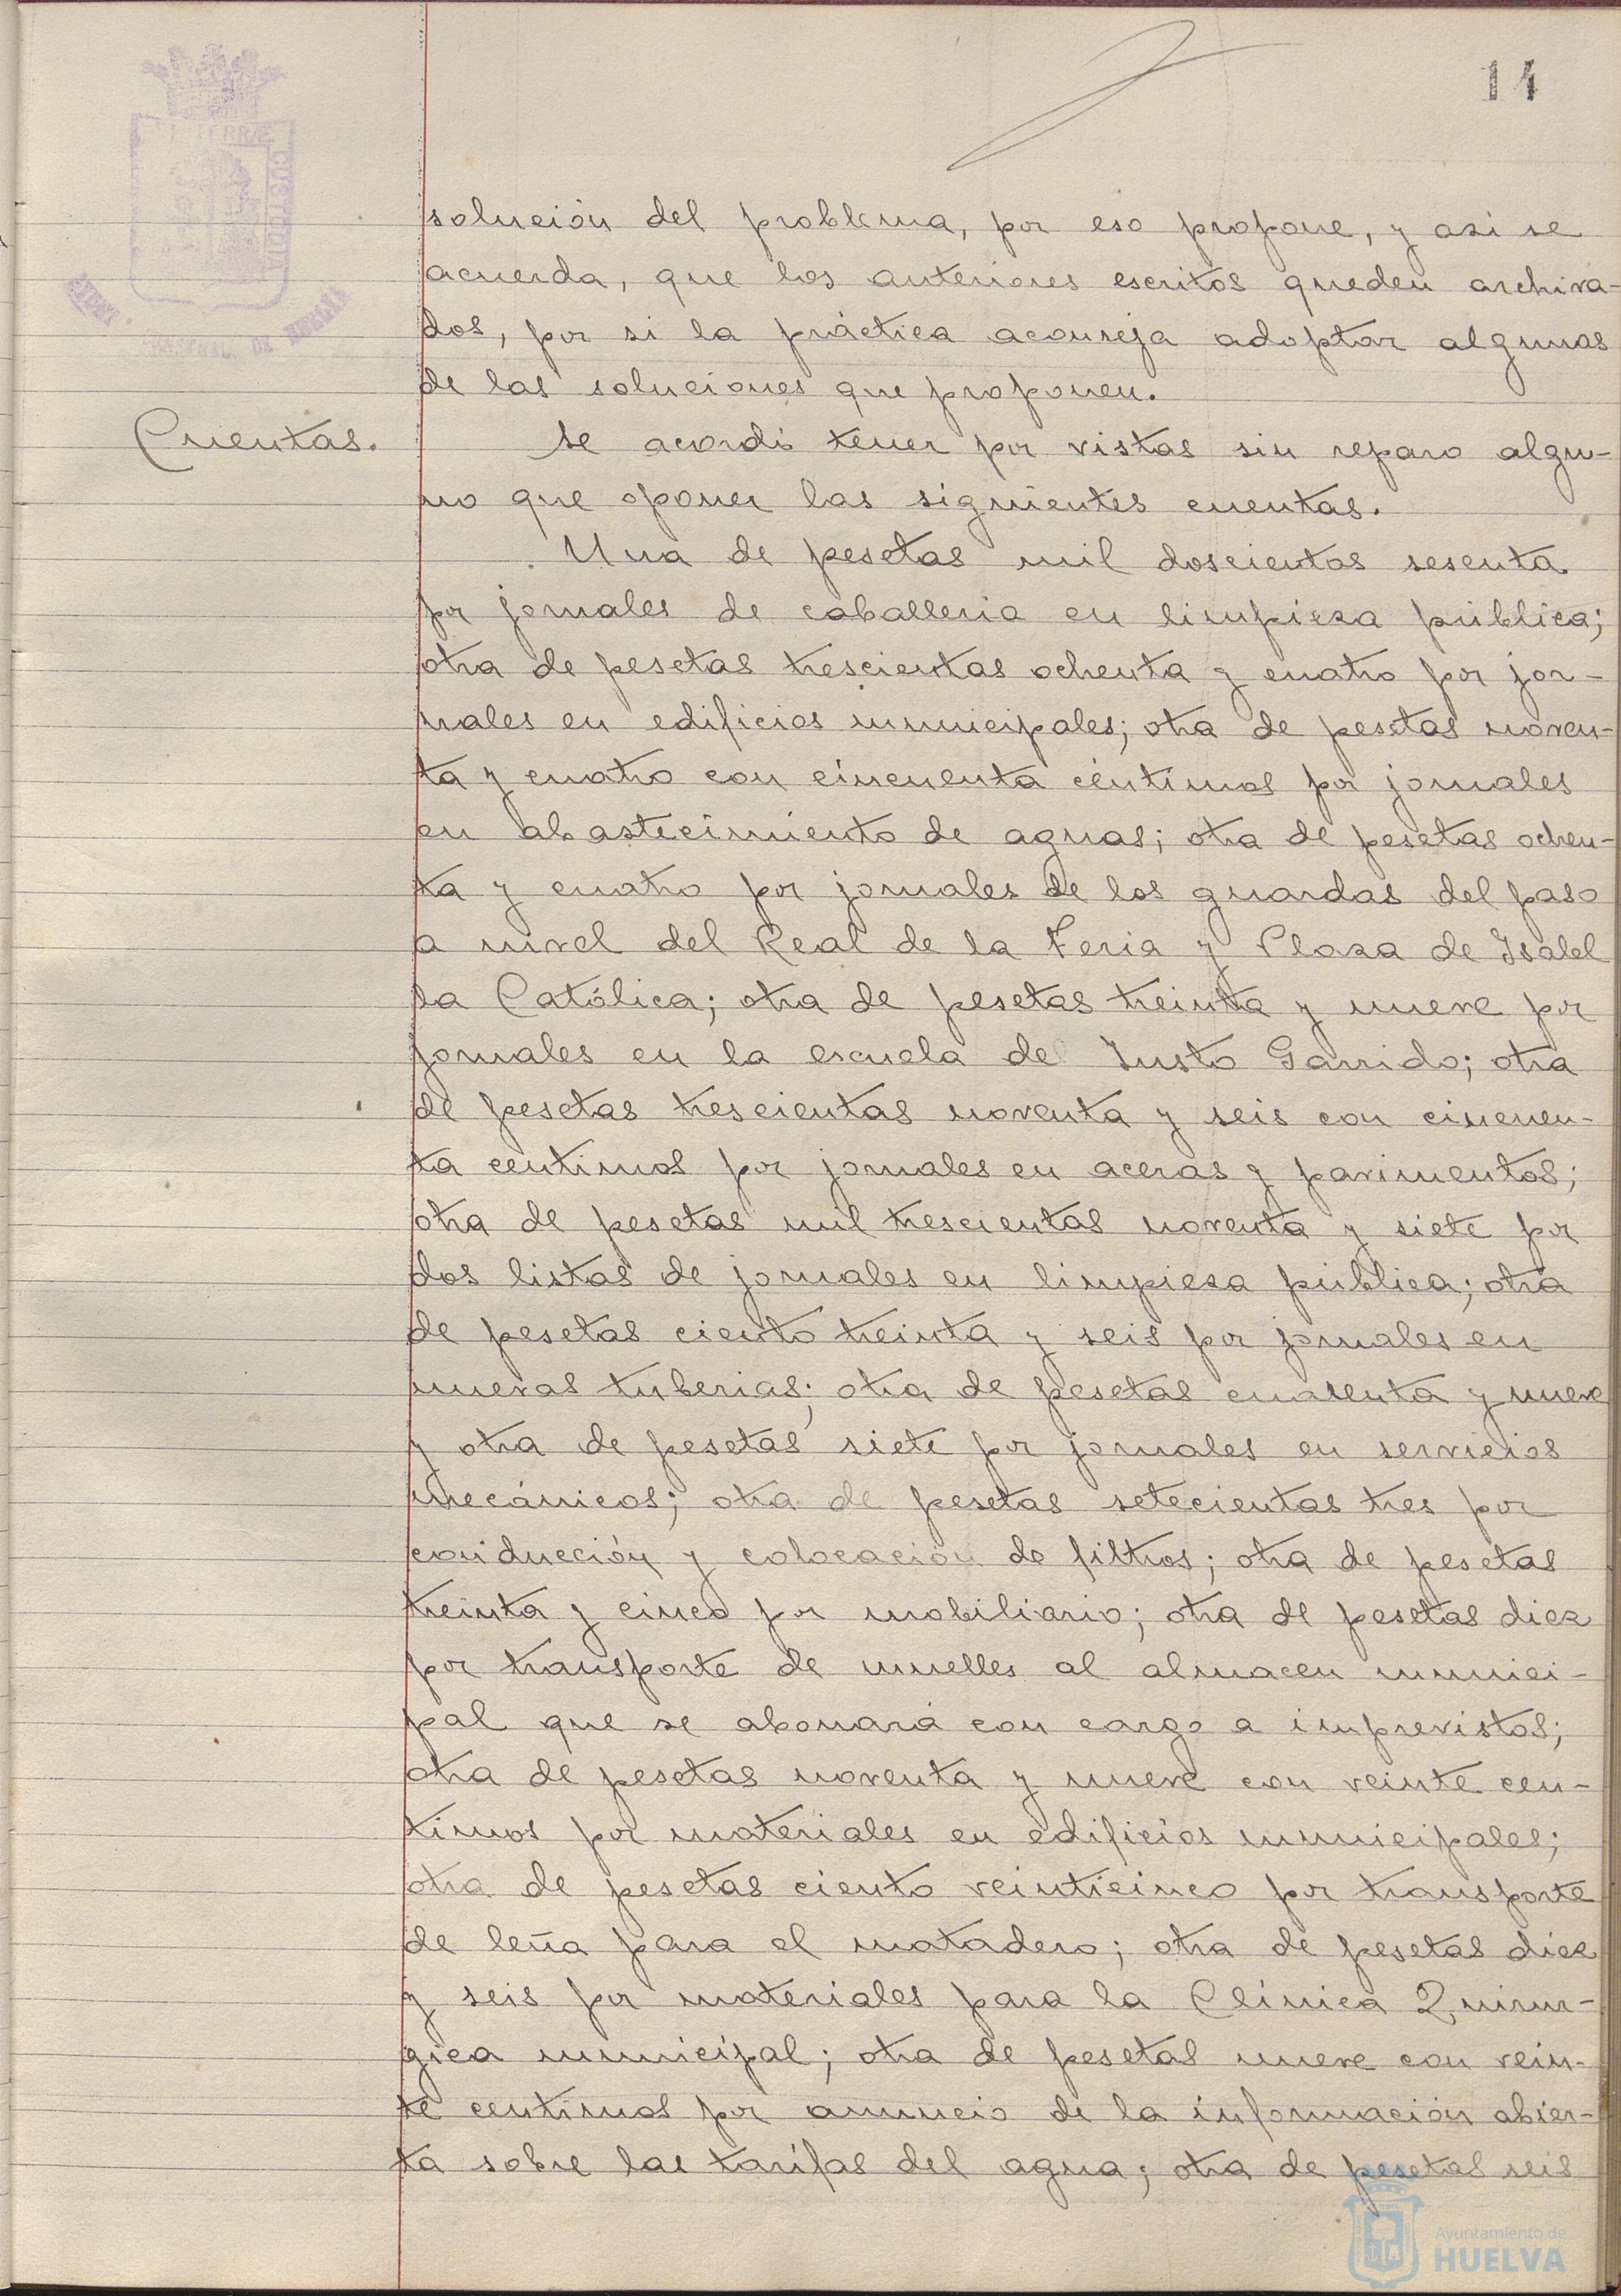 14
solución del problema, por eso propone, y asi se
acuerda, que los anteriores escritos queden archiva-
dos, por si la práctica aconseja adoptar algunas
de las soluciones que proponen.
Cuentas.
Se acordó tener por vistas sin reparo algu-
no que oponer las siguientes cuentas.
Una de pesetas mil doscientas sesenta
por jornales de caballeria en limpieza pública;
otra de pesetas trescientas ochenta y cuatro por jor-
nales en edificios municipales; otra de pesetas noven-
ta y cuatro con cincuenta céntimos por jornales
en abastecimiento de aguas; otra de pesetas ochen-
ta y cuatro por jornales de los guardas del paso
a nivel del Real de la Feria y Plaza de Isabel
la Católica; otra de pesetas treinta y nueve por
jornales en la escuela de Justo Garrido; otra
de pesetas trescientas noventa y seis con cincuen-
ta centimos por jornales en aceras y pavimentos;
otra de pesetas mil trescientas noventa y siete por
dos listas de jornales en limpieza pública; otra
de pesetas ciento treinta y seis por jornales en
nuevas tuberias; otra de pesetas cuarenta y nueve
y otra de pesetas siete por jornales en servicios
mecánicos; otra de pesetas setecientas tres por
conducción y colocación de filtros; otra de pesetas
treinta y cinco por mobiliario; otra de pesetas diez
por transporte de muelles al almacen munici-
pal que se abonará con cargo a imprevistos;
otra de pesetas noventa y nueve con veinte cen-
timos por materiales en edificios municipales;
otra de pesetas ciento veinticinco por transporte
de leña para el matadero; otra de pesetas diez
y seis por materiales para la Clínica Quirur-
gica municipal; otra de pesetas nueve con vein-
te centimos por anuncio de la información abier-
ta sobre las tarifas del agua; otra de pesetas seis
Ayuntamiento de
HUELVA